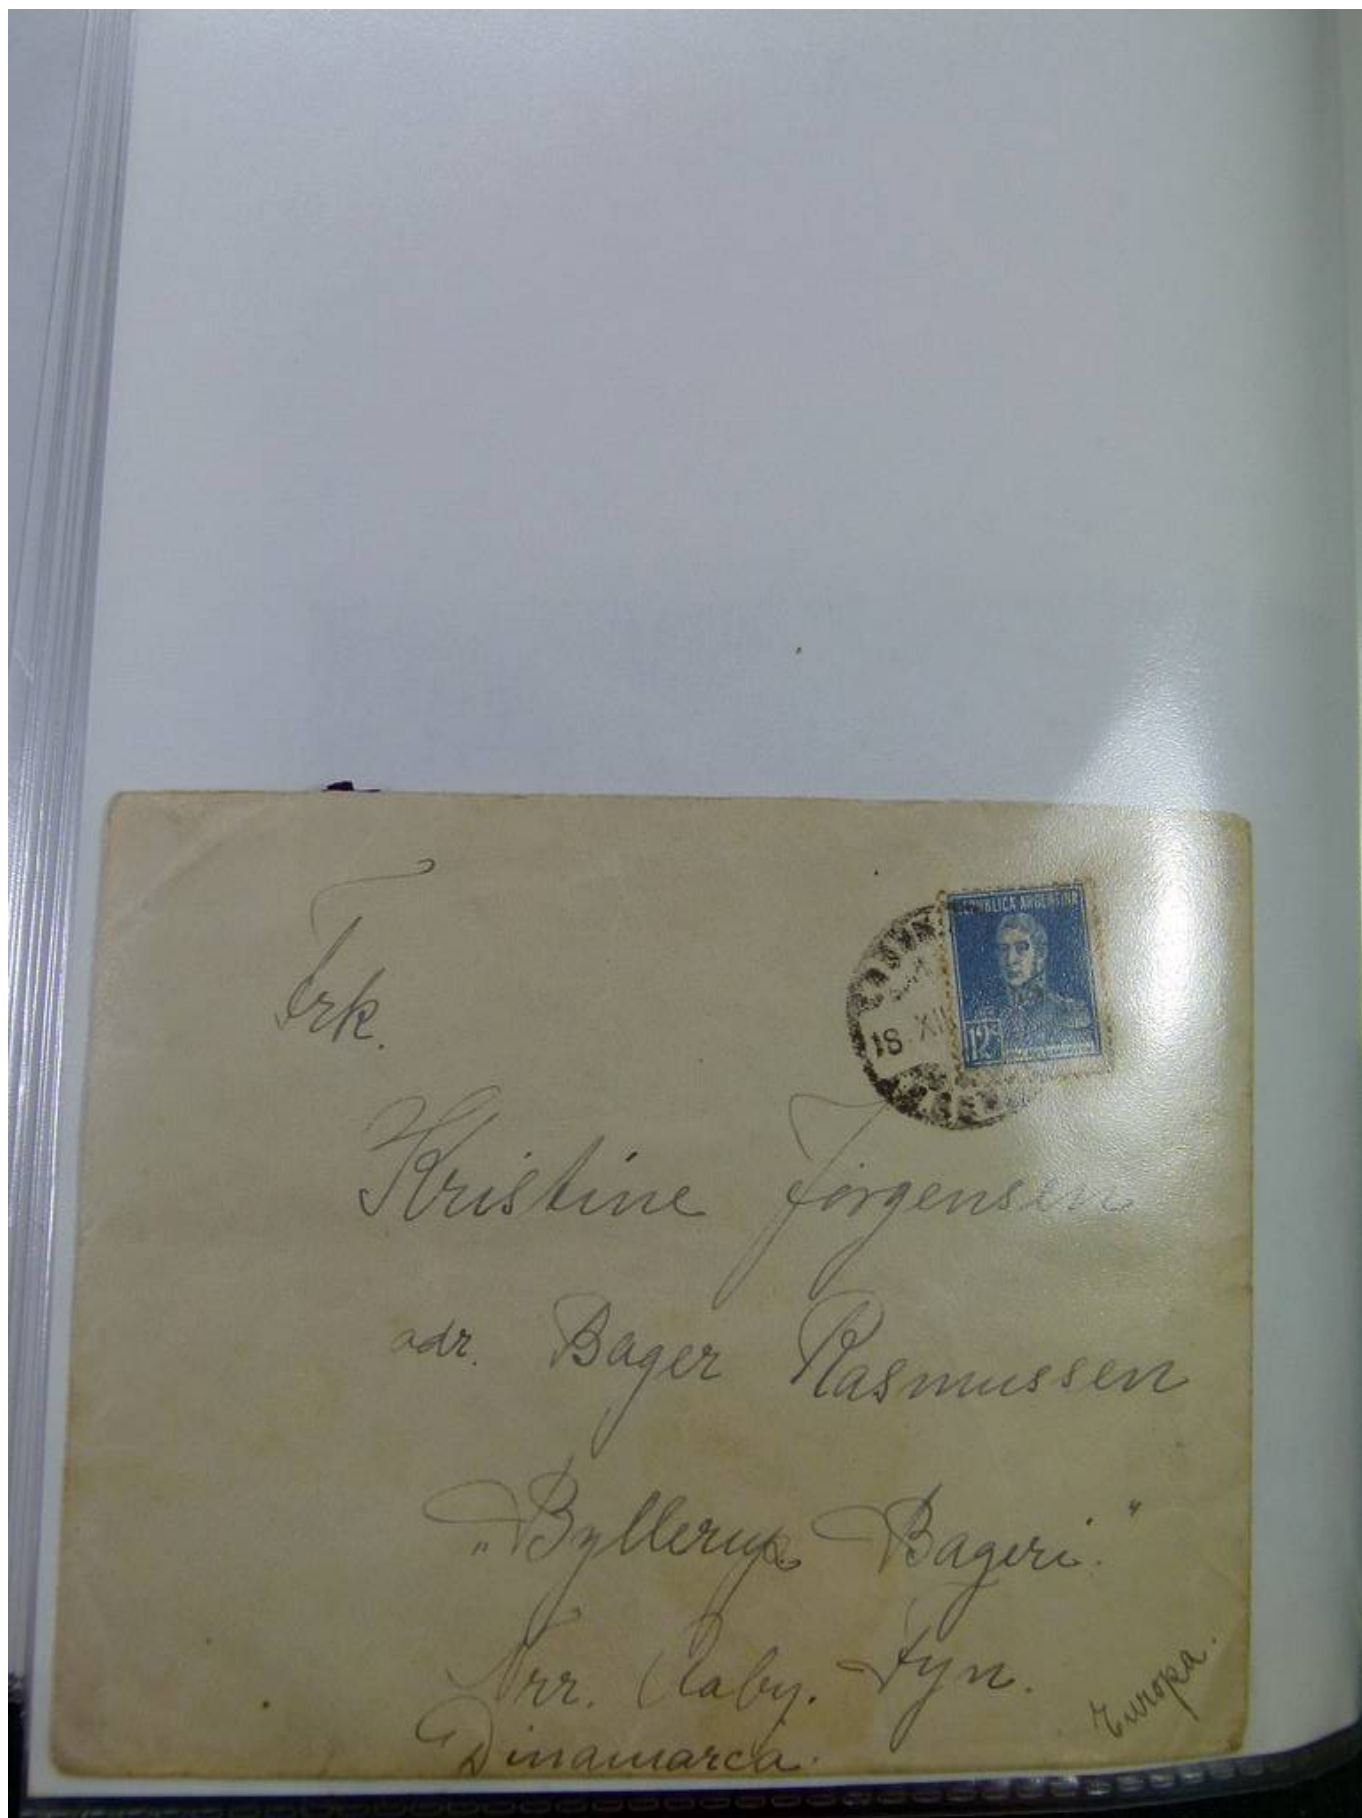 REPUBLICA ARGENTINA
12
18 XII
Frk.
Kristine Jörgensen
adr. Bager Rasmussen
„Byllerup Bageri.“
Nrr. Raby. Fyn.
Dinamarca.
Europa.